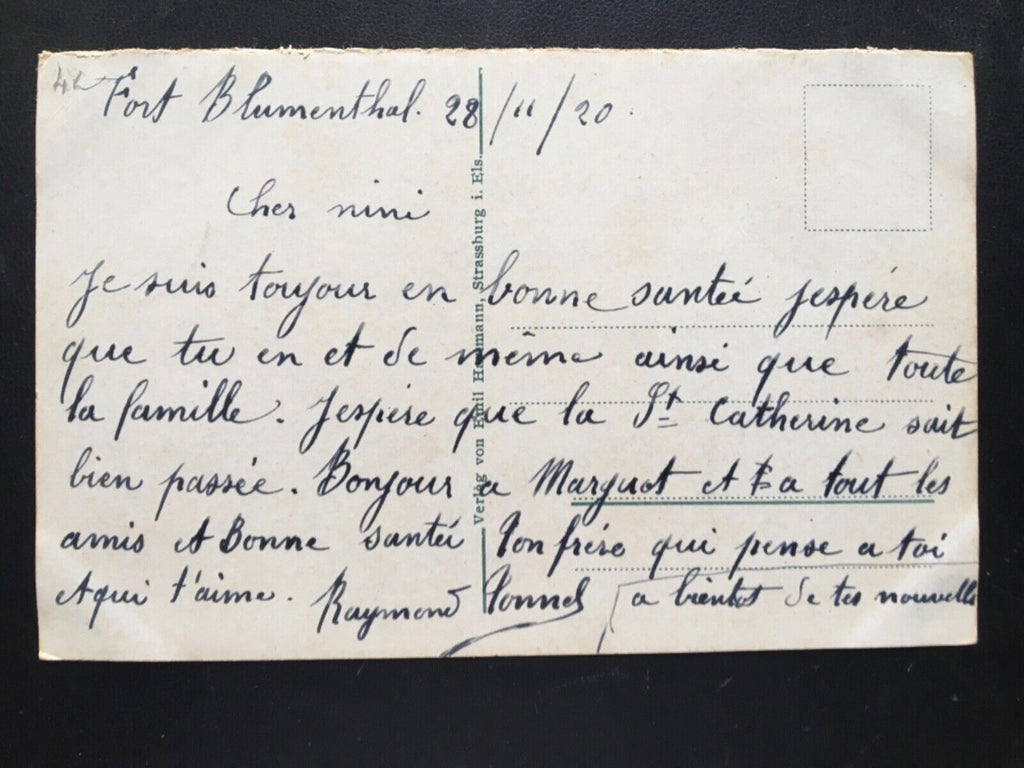 Fort Blumenthal. 28/11/20.
Cher nini
Je suis toujour en bonne santée jespére
que tu en et de même ainsi que toute
la famille. Jespere que la St Catherine sait
bien passée. Bonjour a Marguot et a tout les
amis et Bonne santée Ton frére qui pense a toi
et qui t'aime. Raymond
a bientot de tes nouvelle
Verlag von Emil Hartmann, Strassburg i. Els.